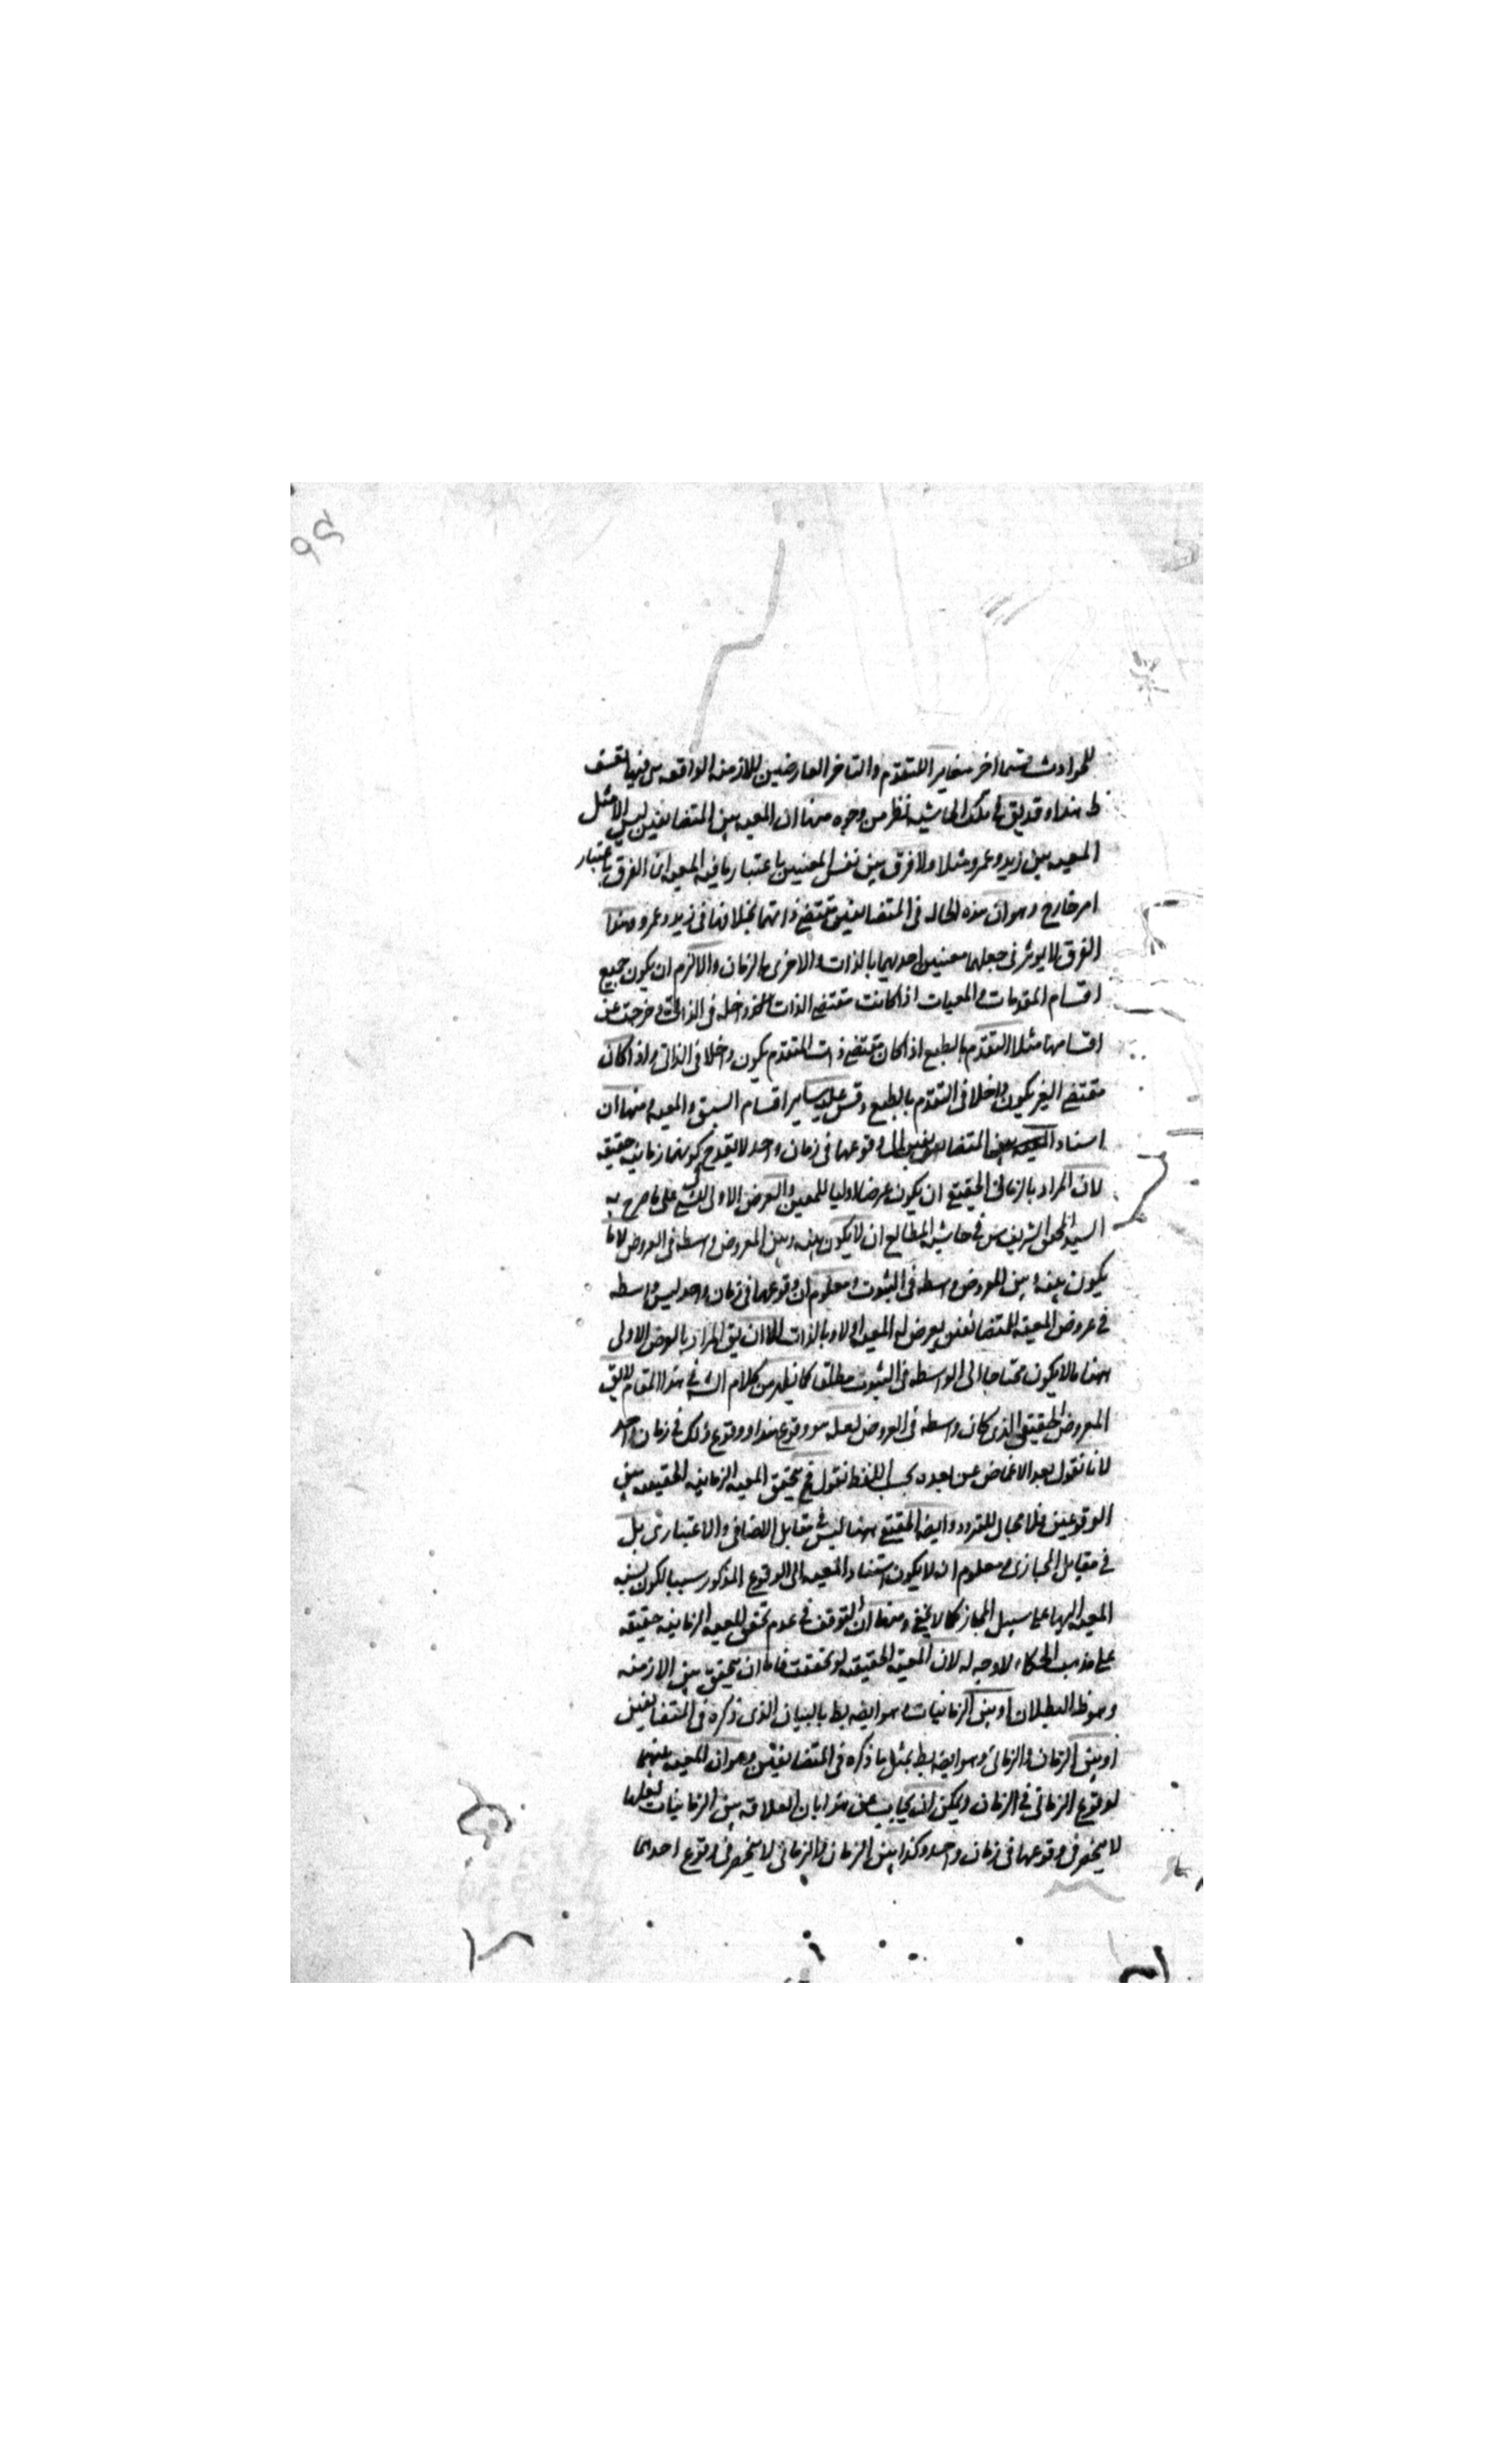 للحوادث قسما اخر مغاير للتقدم والتاخر العارضين للازمنة الواقعة هى فيها تعسف
ظ هذا وقد بقى فى تلك الحاشيه نظر من وجوه منها ان المعيه بين المتضايفين ليس الا مثل
المعيه بين زيد وعمرو مثلا ولا فرق بين نفس المعيتين باعتبار ما فيه المعيه ان الفرق باعتبار
امر خارج وهو ان هذه الحاله فى المتضايفين تقتضى ذاتهما بخلافها فى زيد وعمرو وهذا
الفرق لا يوثر فى جعلهما معنيين احديهما بالذات والاخرى بالزمان والا لزم ان يكون جميع
اقسام المقدمات والمعيات اذا كانت مقتضى الذات داخله فى الذاتى وخرجت عن
اقسامها مثلا التقدم بالطبع اذا كان مقتضى ذات المتقدم يكون داخلا فى الذاتى واذا كان
مقتضى الغير يكون داخلا فى التقدم بالطبع وقس عليه ساير اقسام السبق والمعيه ومنها ان
اسناد المعيه بين المتضايفين الى وقوعهما فى زمان واحد لا يقدح كونهما زمانيه حقيقه
لان المراد بالزمانى الحقيقى ان يكون عرضا اوليا للمعين والعرض الاولى للشى على ما صرح به
السيد المحقق الشريف س فى حاشية المطالع ان لا يكون بينه وبين المعروض واسطه فى العروض لا ما
يكون بينه وبين المعروض واسطه فى الثبوت ومعلوم ان وقوعهما فى زمان واحد ليس واسطه
فى عروض المعيه للمتضائفين يعرض له المعيه اولا وبالذات الا ان يق المراد بالعرض الاولى
ههنا ما لا يكون محتاجا الى الواسطه فى الثبوت مطلقا كما يظهر من كلام الش فى هذا المقام لا يق
المعروض الحقيقى الذى كان واسطه فى العروض لعله هو وقوع هذا ووقوع ذلك فى زمان واحد
لانا نقول بعد الاغماض عن بعده بحسب اللفظ نقول فح يتحقق المعيه الزمانيه الحقيقيه بين
الوقوعين فلا مجال للتردد وايضا الحقيقى ههنا ليس فى مقابل الاضافى والاعتبارى بل
فى مقابل المجازى ومعلوم ان لا يكون استناد المعيه الى الوقوع المذكور سببا لكون نسبه
المعيه اليهما على سبيل المجاز كما لا يخفى ومنها ان التوقف فى عدم تحقق المعيه الزمانيه حقيقه
على مذهب الحكماء لا وجه له لان المعيه الحقيقيه لو تحققت فاما ان يتحقق بين الازمنه
وهو ظ البطلان او بين الزمانيات وهو ايضا بط بالبيان الذى ذكره فى المتضايفين
او بين الزمان والزمانى وهو ايضا بط بمثل ما ذكره فى المتضايفين وهو ان المعيه بينهما
لوقوع الزمانى فى الزمان ويمكن ان يجاب عن هذا بان العلاقه بين الزمانيات لعلها
لا ينحصر فى وقوعهما فى زمان واحد وكذا بين الزمان والزمانى لا ينحصر فى وقوع احدهما